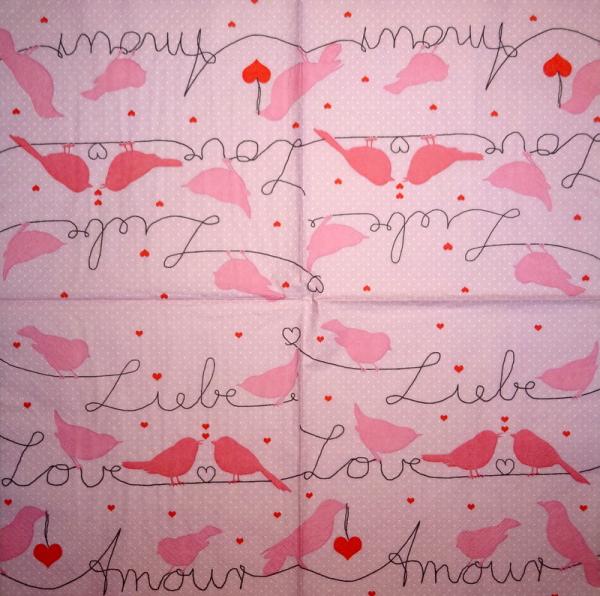 Amour Amour
Love Love
Liebe Liebe
Liebe Liebe
Love Love
Amour Amour